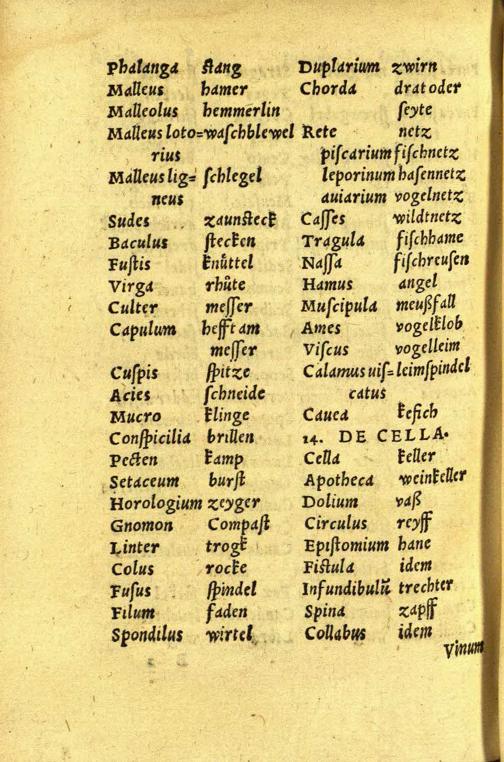 Phalanga ſtang
Malleus hamer
Malleolus hemmerlin
Malleus loto=waſchblewel
rius
Malleus lig= ſchlegel
neus
Sudes zaunſteck
Baculus ſtecken
Fuſtis knüttel
Virga rhůte
Culter meſſer
Capulum hefft am
meſſer
Cuſpis ſpitze
Acies ſchneide
Mucro klinge
Conſpicilia brillen
Pecten kamp
Setaceum burſt
Horologium zeyger
Gnomon Compaſt
Linter trogk
Colus rocke
Fuſus ſpindel
Filum faden
Spondilus wirtel
Duplarium zwirn
Chorda drat oder
ſeyte
Rete netz
piſcarium fiſchnetz
leporinum haſennetz
auiarium vogelnetz
Caſſes wildtnetz
Tragula fiſchhame
Naſſa fiſchreuſen
Hamus angel
Muſcipula meußfall
Ames vogelklob
Viſcus vogelleim
Calamus uiſ=leimſpindel
catus
Cauea kefich
14. DE CELLA.
Cella keller
Apotheca weinkeller
Dolium vaß
Circulus reyff
Epiſtomium hane
Fiſtula idem
Infundibulũ trechter
Spina zapff
Collabus idem
Vinum